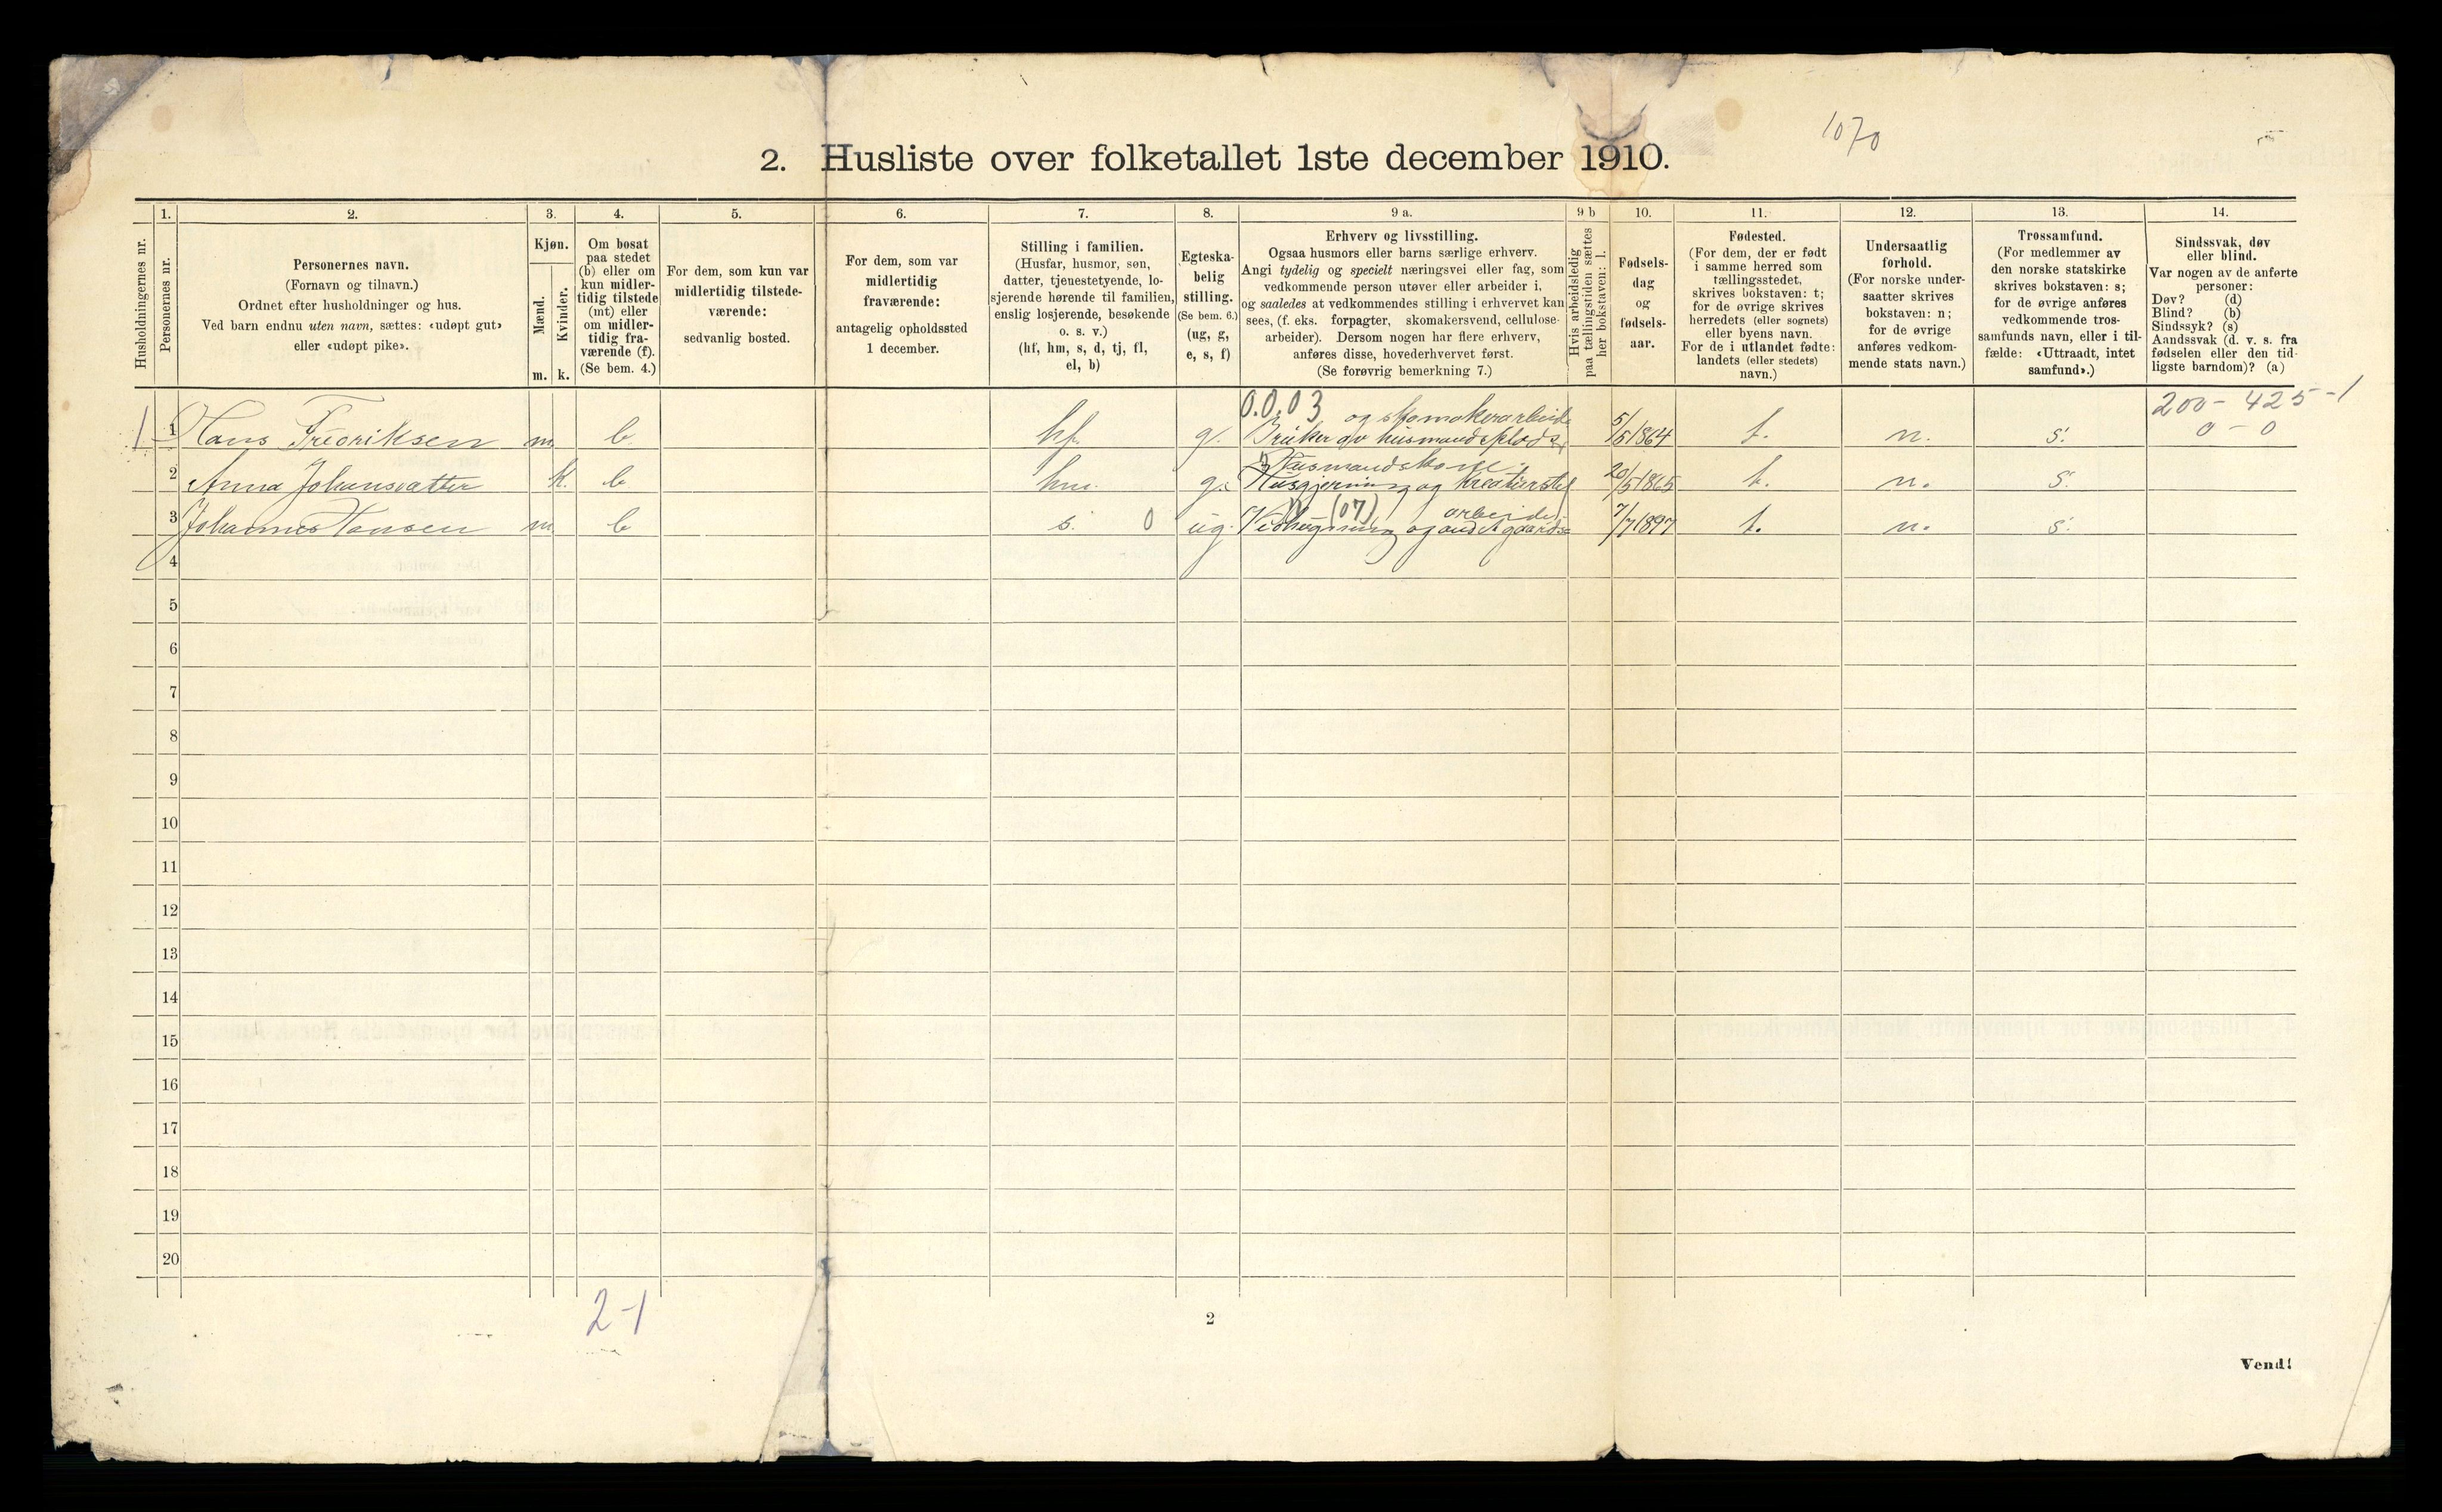 1070
2. Husliste over folketallet 1ste december 1910.
Husholdningernes nr.
1.
Personernes nr.
2.
Personernes navn.
(Fornavn og tilnavn.)
Ordnet efter husholdninger og hus.
Ved barn endnu uten navn, sættes: «udøpt gut»
eller «udøpt pike».
3.
Kjøn.
Mænd.
Kvinder.
m.
k.
4.
Om bosat
paa stedet
(b) eller om
kun midler-
tidig tilstede
(mt) eller
om midler-
tidig fra-
værende (f).
(Se bem. 4.)
5.
For dem, som kun var
midlertidig tilstede-
værende:
sedvanlig bosted.
6.
For dem, som var
midlertidig
fraværende:
antagelig opholdssted
1 december.
7.
Stilling i familien.
(Husfar, husmor, søn,
datter, tjenestetyende, lo-
sjerende hørende til familien,
enslig losjerende, besøkende
o. s. v.)
(hf, hm, s, d, tj, fl,
el, b)
8.
Egteska-
belig
stilling.
(Se bem. 6.)
(ug, g,
e, s, f)
9 a.
Erhverv og livsstilling.
Ogsaa husmors eller barns særlige erhverv.
Angi tydelig og specielt næringsvei eller fag, som
vedkommende person utøver eller arbeider i,
og saaledes at vedkommendes stilling i erhvervet kan
sees, (f. eks. forpagter, skomakersvend, cellulose-
arbeider). Dersom nogen har flere erhverv,
anføres disse, hovederhvervet først.
(Se forøvrig bemerkning 7.)
9 b
Hvis arbeidsledig
paa tællingstiden sættes
her bokstaven: l.
10.
Fødsels-
dag
og
fødsels-
aar.
11.
Fødested.
(For dem, der er født
i samme herred som
tællingsstedet,
skrives bokstaven: t;
for de øvrige skrives
herredets (eller sognets)
eller byens navn.
For de i utlandet fødte:
landets (eller stedets)
navn.)
12.
Undersaatlig
forhold.
(For norske under-
saatter skrives
bokstaven: n;
for de øvrige
anføres vedkom-
mende stats navn.)
13.
Trossamfund.
(For medlemmer av
den norske statskirke
skrives bokstaven: s;
for de øvrige anføres
vedkommende tros-
samfunds navn, eller i til-
fælde: «Uttraadt, intet
samfund».)
14.
Sindssvak, døv
eller blind.
Var nogen av de anførte
personer:
Døv? (d)
Blind? (b)
Sindssyk? (s)
Aandssvak (d. v. s. fra
fødselen eller den tid-
ligste barndom)? (a)
0.0.03 og skomakerarbeide 200 - 425 - 1
1 1 Hans Fredriksen m b. hf. g. Bruker av husmandsplads 5/5 1864 t. n. s. 0 - 0
Husmandskone
2 Anna Johansdatter k. b hm. g. Husgjerning og kreaturstel 20/5 1865 t. n. s.
(07) arbeide
3 Johannes Hansen m b s. 0 ug. Vedhugning og andet gaards- 7/7 1897 t. n. s.
4
5
6
7
8
9
10
11
12
13
14
15
16
17
18
19
20
2-1
2
Vend!